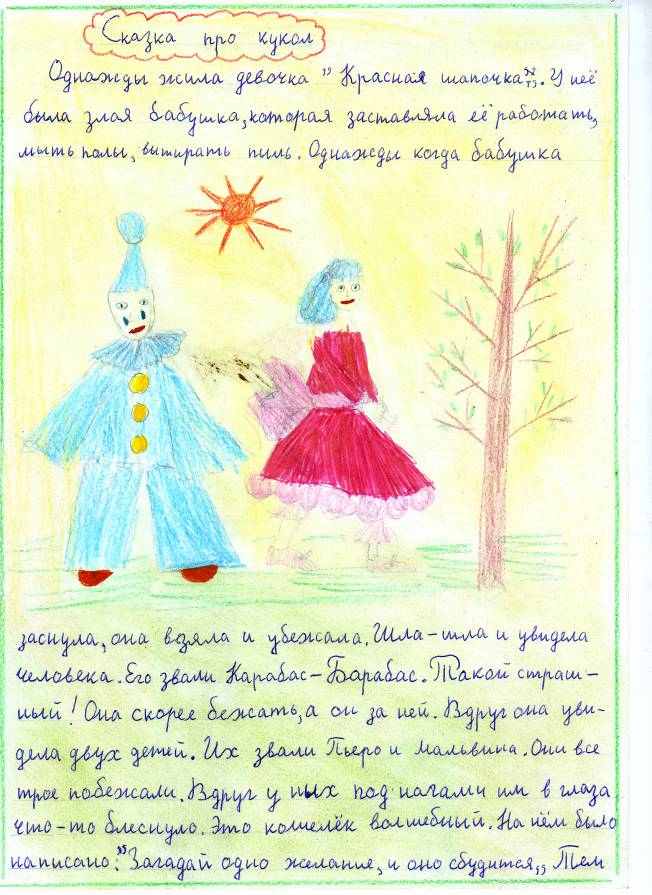 Сказка про кукол
Однажды жила девочка „Красная шапочка". У неё
была злая бабушка, которая заставляла её работать,
мыть полы, вытирать пыль. Однажды когда бабушка
заснула, она взяла и убежала. Шла-шла и увидела
человека. Его звали Карабас-Барабас. Такой страш-
ный! Она скорее бежать, а он за ней. Вдруг она уви-
дела двух детей. Их звали Пьеро и Мальвина. Они все
трое побежали. Вдруг у ных под нагами им в глаза
что-то блеснуло. Это кошелёк волшебный. На нём было
написано: "Загадай одно желание, и оно сбудится„ Тем